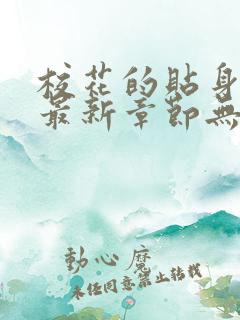 校花的貼身
最新章節無
動心麼
未經同意禁止轉載